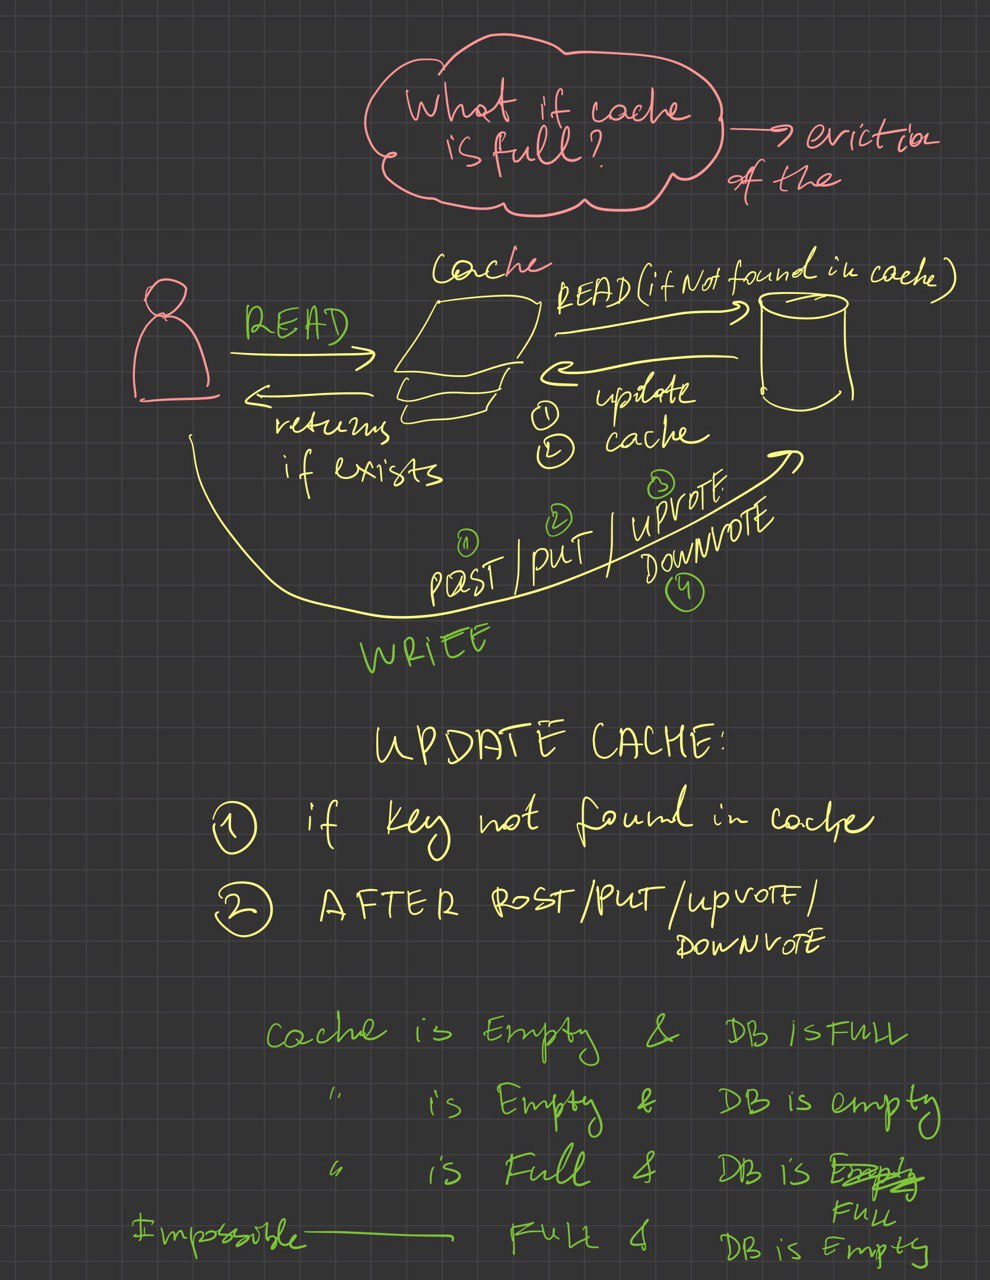 What if cache
is full?
→ eviction
of the
Cache
READ
READ (if Not found in cache)
returns
if exists
update
cache
①
②
① ② ③
POST / PUT / UPVOTE
DOWNVOTE
④
WRITE
UPDATE CACHE:
① if key not found in cache
② AFTER POST/PUT/UPVOTE/
DOWNVOTE
Cache is Empty & DB is FULL
" is Empty & DB is empty
" is Full & DB is Empty
FULL
Impossible Full & DB is Empty